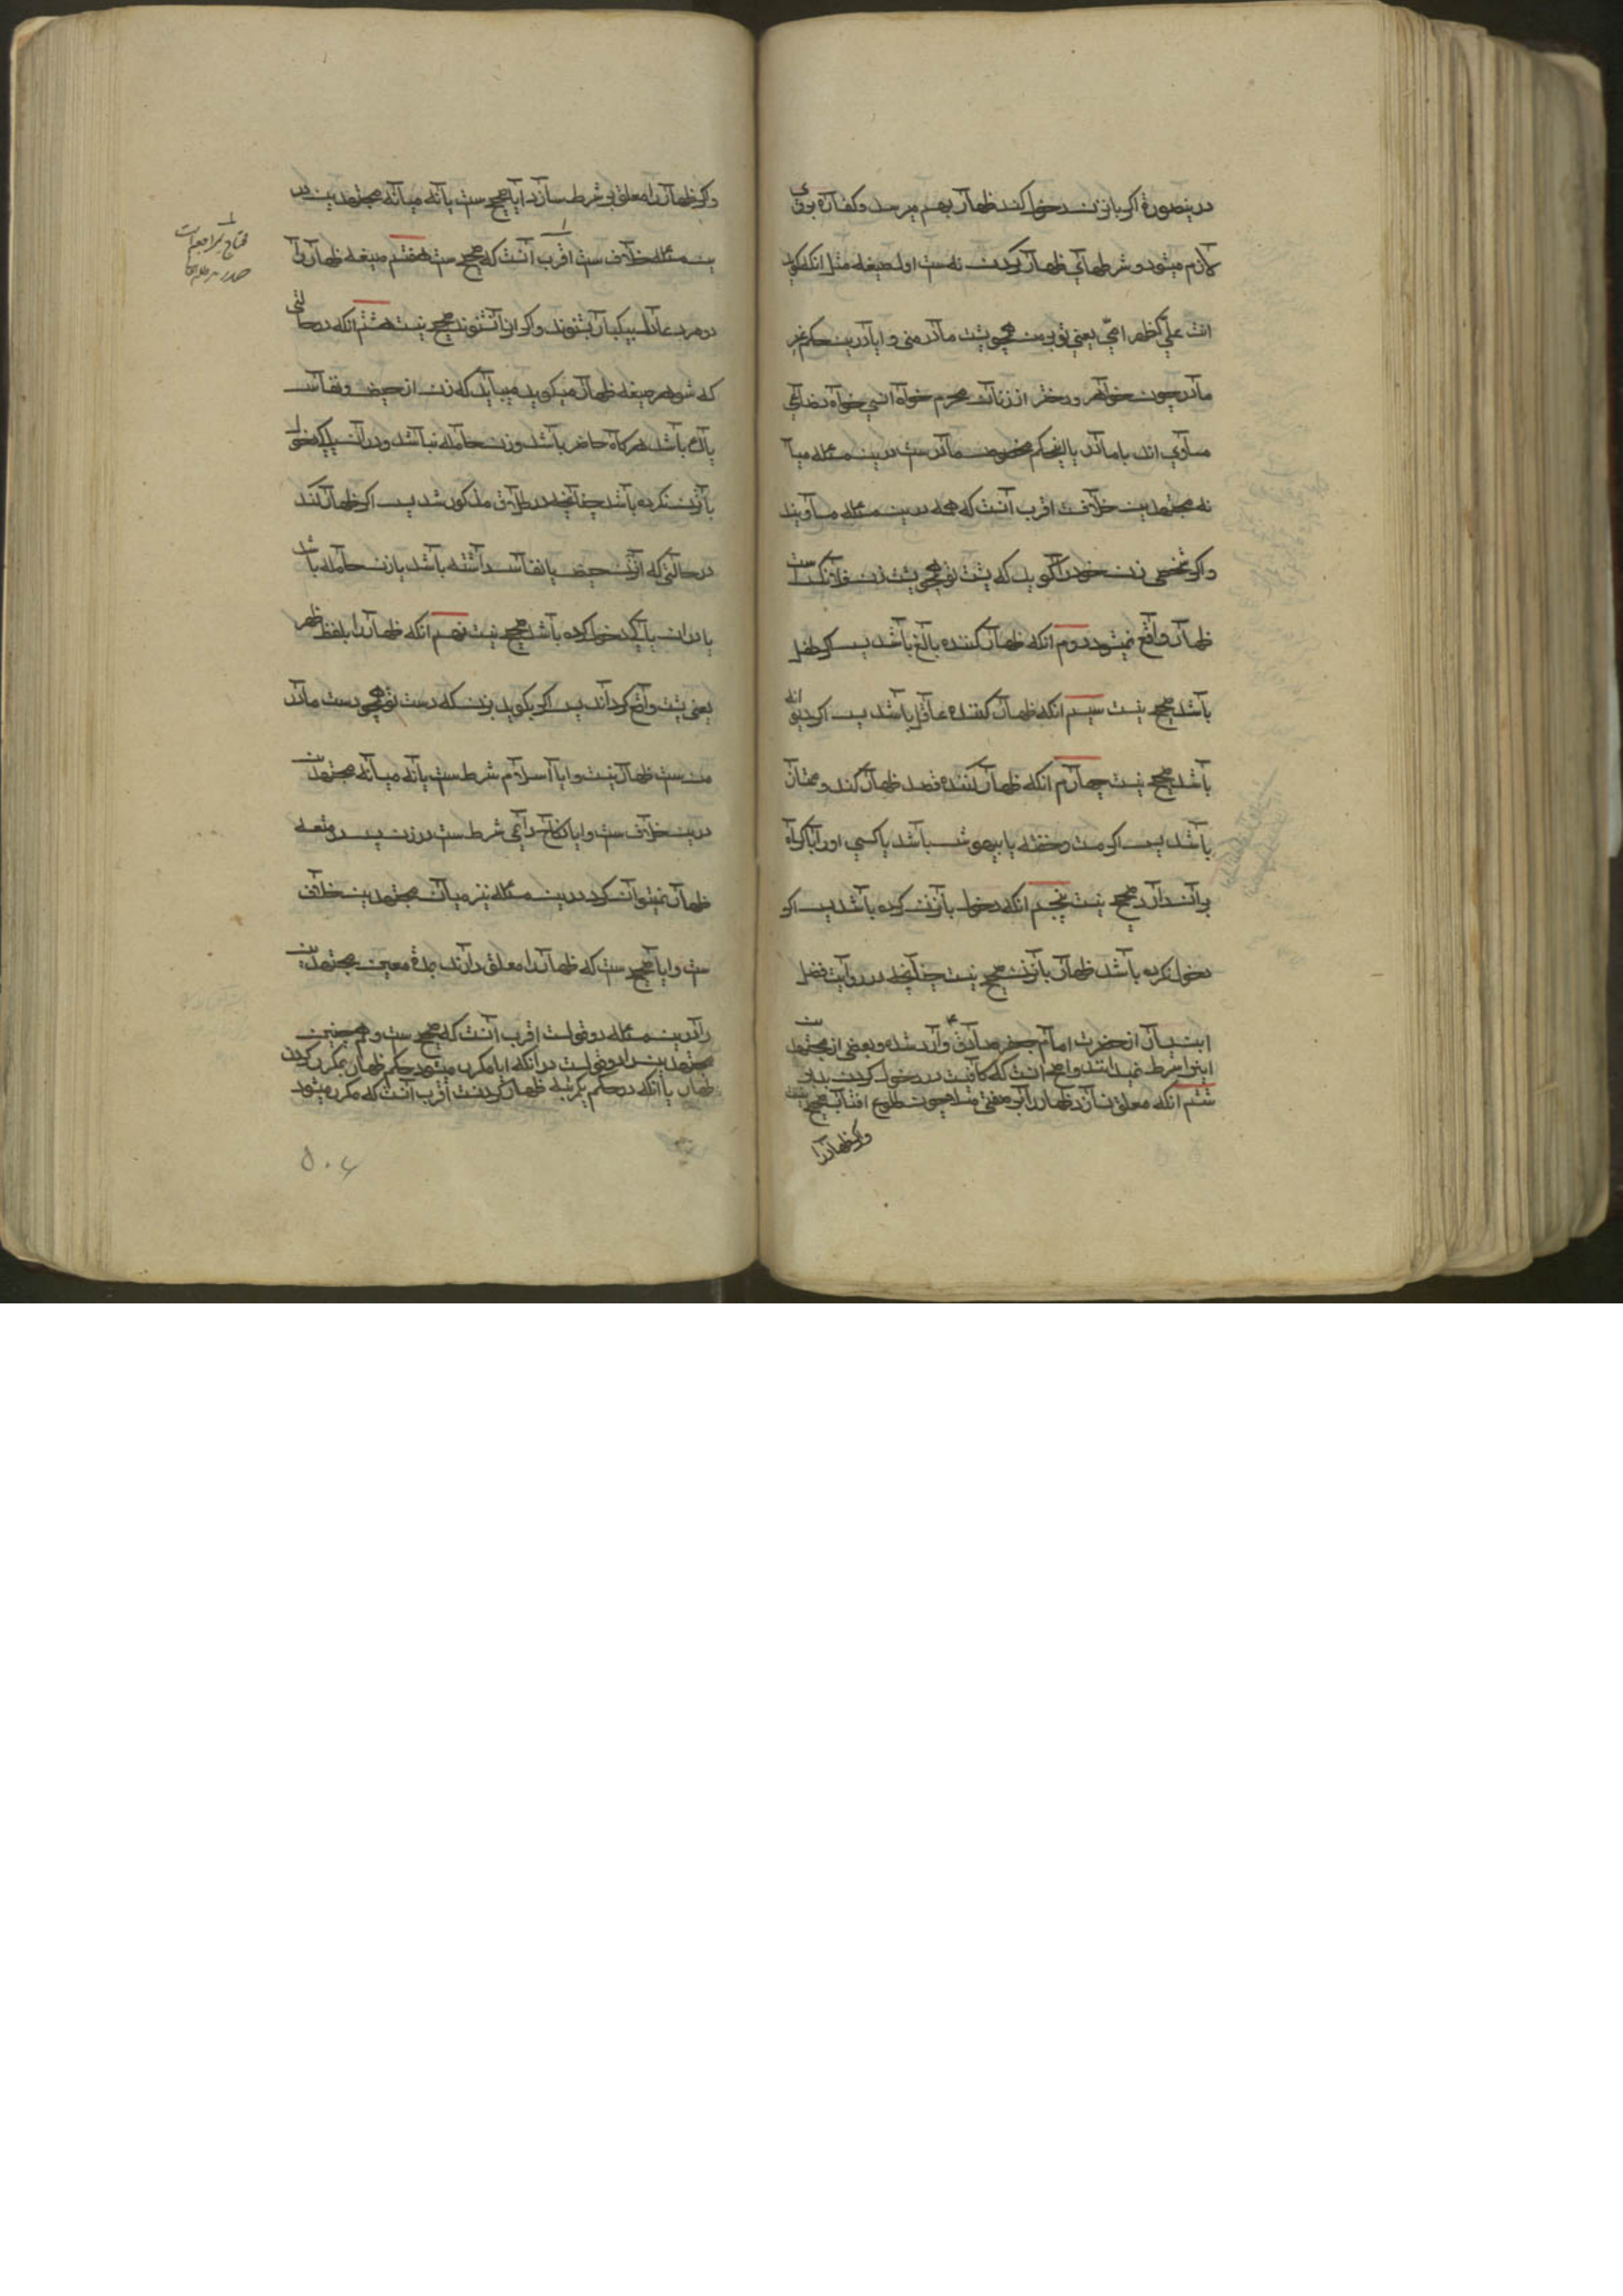 درینصورة اکر بانزن دخول کند ظهار بهم میرسد و کفاره بروی
لازم میشود و شرطهای ظهار کردن نه ست اول صیغه مثل انکه بکوید
انت علي کظهر امي یعنی تو بر من همچو پشت مادر منی و ایا درین حکم غیر
مادر چون خواهر و دختر از زنان محرم خواه نسبي خواه رضاعي
مساوي اند با مادر یا اینحکم مخصوص مادر ست درین مسئله میا
نه مجتهدین خلافست اقرب آنست که همه درین مسئله مساویند
و اکر شخصی زن خود را کوید که پشت تو همچو پشت زن فلانکس ست
ظهار واقع نمیشود دوم انکه ظهار کننده بالغ باشد پس اکر طفل
باشد صحیح نیست سیم انکه ظهار کننده عاقل باشد پس اکر دیوانه
باشد صحیح نیست چهارم انکه ظهار کننده قصد ظهار کند و مختار
باشد پس اکر مست و خفته یا بیهوش باشد یا کسي اورا باکراه
بر آن دارد صحیح نیست پنجم انکه دخول بآنزن کرده باشد پس اکر
دخول نکرده باشد ظهار بآنزن صحیح نیست چنانچه در روایت فضل
ابن یسار از حضرت امام جعفر صادق ع وارد شده و بعضی از مجتهدین
اینرا شرط نمیدانند و اصح انست که کافیست در دخول کردن
ششم انکه معلق نسازد ظهار را بر صفتی مثلا چون طلوع افتاب صحیح نیست
و اکر ظهار را
و اکر ظهار را معلق بر شرط سازد ایا صحیح ست یا نه میانه مجتهدین در
ین مسئله خلاف ست اقرب آنست که صحیح ست هفتم صیغه ظهار را
دو مرد عادل بیکبار بشنوند و اکر انرا نشنوند صحیح نیست هشتم انکه در حالتی
که شوهر صیغه ظهار میکوید میباید که زن از حیض و نفاس
پاک باشد هرکاه حاضر باشد و زن حامله نباشد و در آن پاکی دخول
بآنزن نکرده باشد چنانچه در طلاق مذکور شد پس اکر ظهار کند
در حالتی که آنزن حیض یا نفاس داشته باشد یا زن حامله باشد
یا در ان پاکی دخول کرده باشد صحیح نیست نهم انکه ظهار را بلفظ ظهر
یعنی پشت واقع کرداند پس اکر بکوید بزن که دست تو همچو دست مادر
من ست ظهار نیست و ایا اسلام شرط ست یا نه میانه مجتهدین
درین خلاف ست و ایا نکاح دایمی شرط ست در زن پس در متعه
ظهار نمیتوان کرد درین مسئله نیز میان مجتهدین خلاف
ست و ایا صحیح ست که ظهار را معلق دارند بمدة معین مجتهدین
را درین مسئله دو قولست اقرب آنست که صحیح ست و همچنین
مجتهدین را دو قولست در آنکه ایا مکرر میشود حکم ظهار بمکرر کردن
ظهار یا آنکه در حکم یکمرتبه ظهار کردنست اقرب آنست که مکرر میشود
۵۰۶